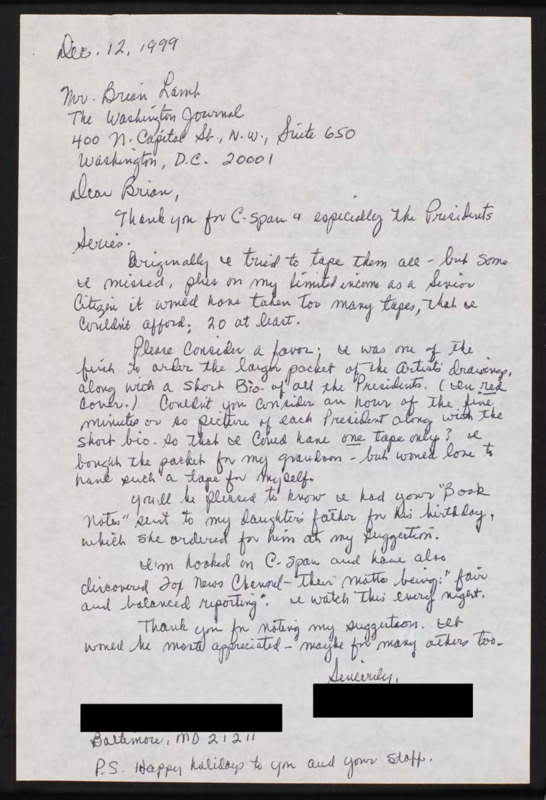 Dec. 12, 1999
Mr. Brian Lamb
The Washington Journal
400 N. Capital St., N.W., Suite 650
Washington, D.C. 20001
Dear Brian,
Thank you for C-Span & especially the Presidents
Series.
Originally I tried to tape them all - but some
I missed, plus on my limited income as a Senior
Citizen it would have taken too many tapes, that I
couldn't afford; 20 at least.
Please consider a favor; I was one of the
first to order the large packet of the Artists drawings,
along with a short Bio. of all the Presidents. (In red
cover.) Couldn't you consider an hour of the five
minutes or so picture of each President along with the
short bio. so that I could have one tape only? I
bought the packet for my grandson - but would love to
have such a tape for myself.
You'll be pleased to know I had your "Book
Notes" sent to my daughter's father for his birthday,
which she ordered for him at my suggestion.
I'm hooked on C-Span and have also
discovered Fox News Channel - their motto being: "fair
and balanced reporting". I watch this every night.
Thank you for noting my suggestion. It
would be most appreciated - maybe for many others too.
Sincerely,
Baltimore, MD 21211
P.S. Happy holidays to you and your staff.